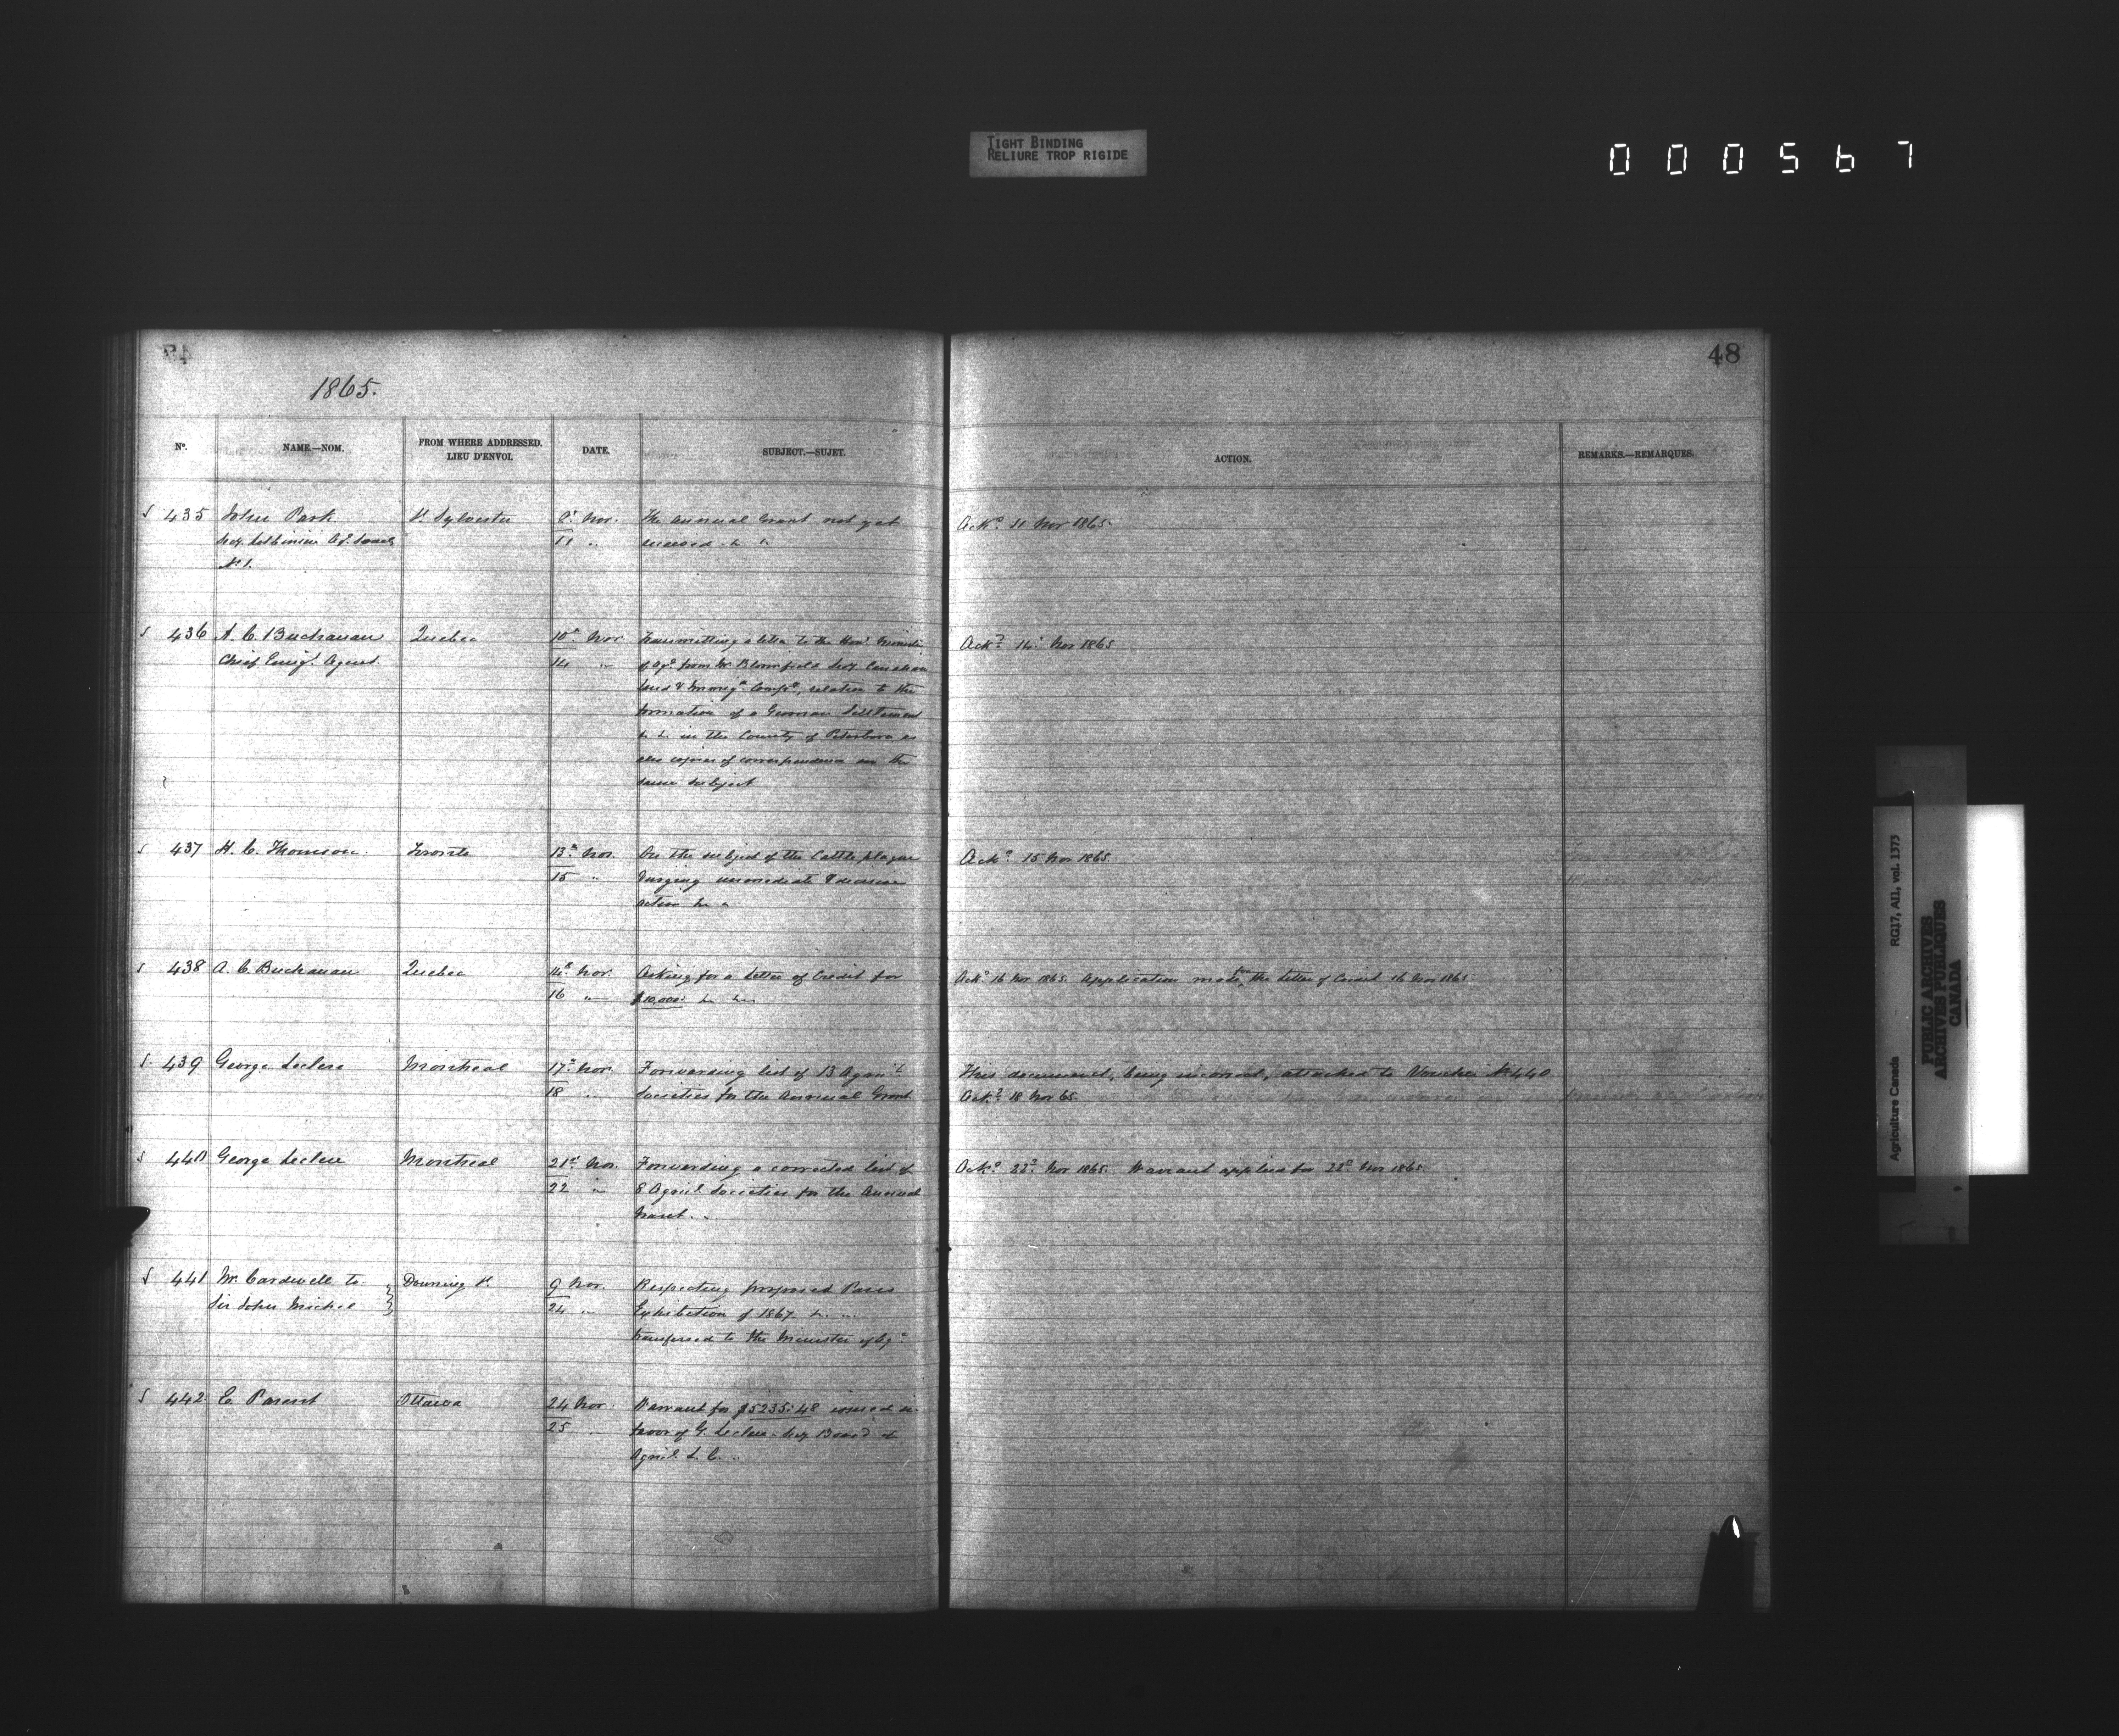 TIGHT BINDING
RELIURE TROP RIGIDE
000567
48
1865.
No. NAME.—NOM. FROM WHERE ADDRESSED. LIEU D'ENVOI. DATE. SUBJECT.—SUJET. ACTION. REMARKS.—REMARQUES.
435 John Park St. Sylvester Nov. The annual Grant not yet Ackd. 11 Nov 1865.
Secy. Lotbinière Ag. Society 11 " received
No 1.
436 A. C. Buchanan Quebec 10th Nov Transmitting a letter to the Hon. Minister Ackd. 14 Nov 1865
Chief Emigt. Agent. 14 " of Agr. from Mr Blomfield Secy. Canadian
Land & Compy., relation to the
formation of a German Settlement
&c &c in the County of Peterboro as
also copies of correspondence on the
same subject
437 H. C. Thomson. Toronto 13th Nov. On the subject of the Cattle plague Ackd. 15 Nov 1865
15 " Urging immediate & decisive
action &c
438 A. C. Buchanan Quebec 14th Nov. Asking for a Letter of Credit for Ackd 16 Nov 1865. Application made for the Letter of Credit 16 Nov 1865
16 " $10,000: &c &c
439 George Leclere Montreal 17th Nov. Forwarding list of 13 Agricl. This document, being incorrect, attached to Voucher No 440
18 " Societies for the Annual Grant Ackd. 18 Nov 65.
440 George Leclere Montreal 21st Nov. Forwarding a corrected list of Ackd. 22d Nov 1865. Warrant applied for 22d Nov 1865.
22 " 8 Agricl. Societies for the Annual
Grant.
441 Mr. Cardwell to Downing St. 9 Nov. Respecting proposed Paris
Sir John Michel 24 " Exhibition of 1867 &c
transferred to the Minister of Agr.
442 E. Parent Ottawa 24 Nov. Warrant for $5235.48 issued in
25 " favor of G. Leclere Secy Board of
Agricl. L. C.
Agriculture Canada RG17, AII, vol. 1373
PUBLIC ARCHIVES
ARCHIVES PUBLIQUES
CANADA